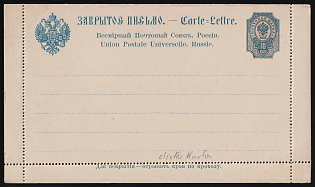 ЗАКРЫТОЕ ПИСЬМО. — Carte=Lettre.
Всемірный Почтовый Союзъ. Россія.
Union Postale Universelle. Russie.
10
Для вскрытія—оторвать край по проколу.